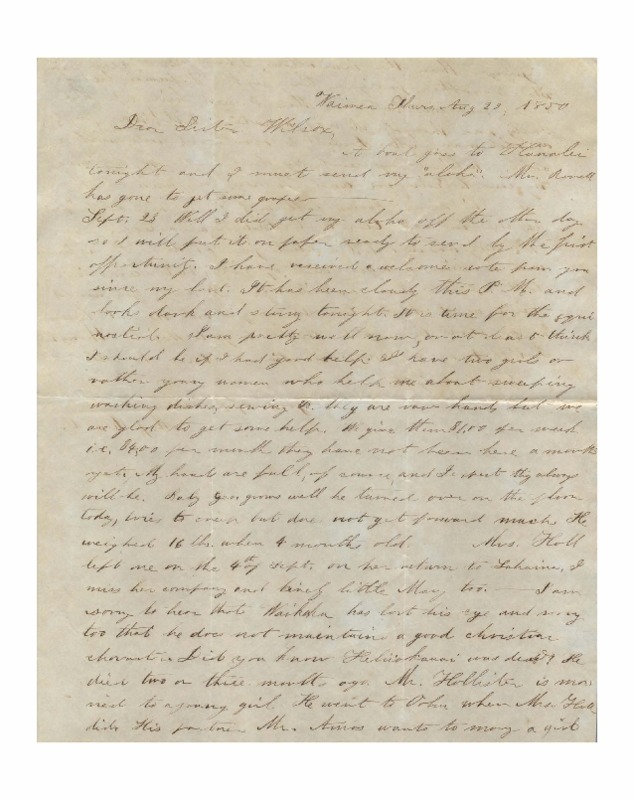 Waimea Thurs Aug 29, 1850
Dear Sister Wilcox,
A boat goes to Hanalei
tonight and I must send my "aloha". Mr. Rowell
has gone to get
Sept. 23 Well I did get my aloha off the other day
so I will put it on paper ready to send by the first
opportunity. I have received a welcome note from you
since my last. It has been cloudy this P.M. and
looks dark and stormy tonight. It is time for the equi
noctial. I am pretty well now, or at least think
I should be if I had good help. I have two girls or
rather young women who help me about sweeping
washing dishes, sewing &c. they are raw hands but we
are glad to get some help. We give them $1,00 per week
i.e. $4,00 per month they have not been here a month
yet. My hands are full, of course, and I expect they always
will be. Baby grows well he turned over on the floor
today, tries to creep but does not get forward much. He
weighed 16 lbs. when 4 months old. Mrs. Hall
left me on the 4th of Sept. on her return to Lahaina, I
miss her company and little Mary too. — I am
sorry to hear that has lost his eye and sorry
too that he does not maintain a good christian
character. Did you know was dead? He
died two or three months ago. Mr. Hollister is mar
ried to a young girl. He went to Oahu when Mrs. Hall
did. His partner Mr. wants to marry a girl